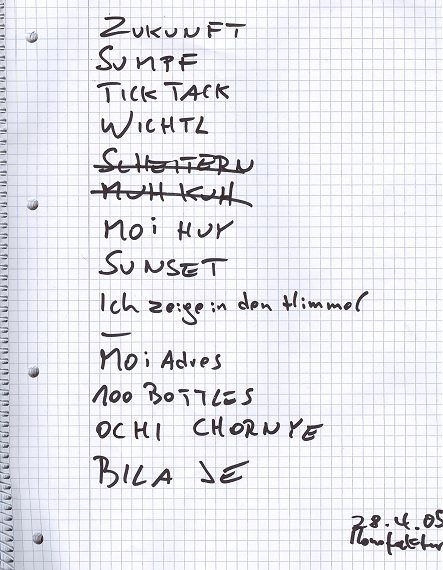 ZUKUNFT
SUMPF
TICK TACK
WICHTL
SCHEITERN
MUH KUH
MOi HUY
SUNSET
Ich zeige in den Himmel
—
MOi Adres
100 BOTTLES
OCHI CHORNYE
BILA JE
28.4.05
Monofaktur